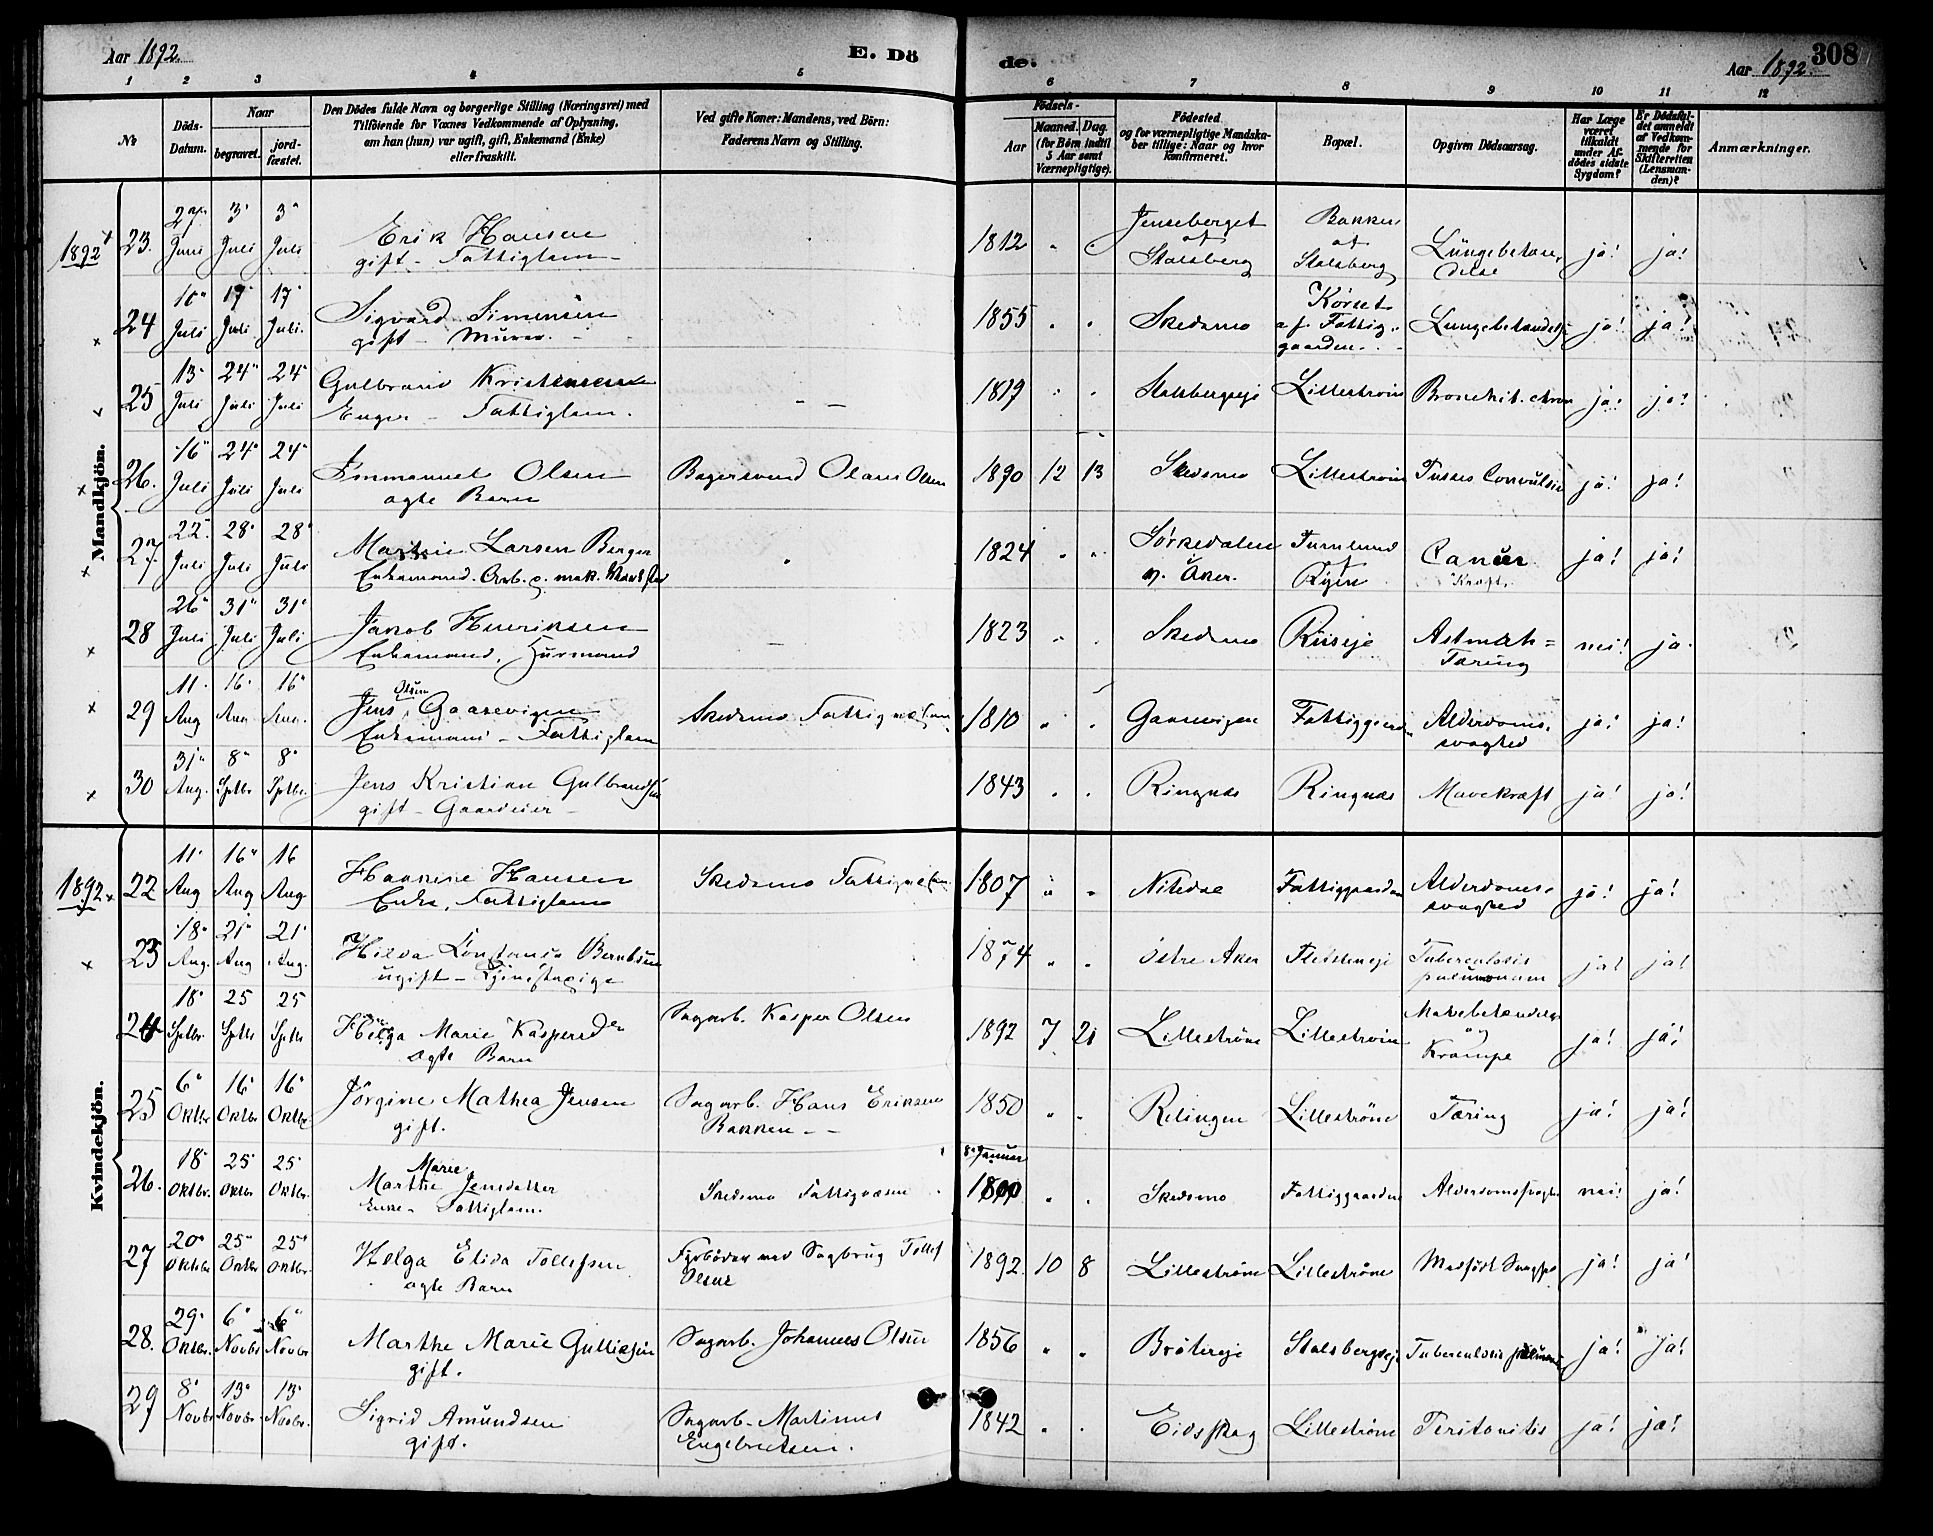 Aar 1892.
E. Dö
de.
Aar 1892.
308
1 2 3 4 5 6 7 8 9 10 11 12
№
Döds-Datum.
Naar
begravet.
jord-fæstet.
Den Dödes fulde Navn og borgerlige Stilling (Næringsvei) med
Tilföiende for Voxnes Vedkommende af Oplysning,
om han (hun) var ugift, gift, Enkemand (Enke)
eller fraskilt.
Ved gifte Koner: Mandens, ved Börn:
Faderens Navn og Stilling.
Födsels-
Aar
Maaned. Dag.
(for Börn indtil
5 Aar samt
Værnepligtige).
Födested
og for værnepligtige Mandska-
ber tillige: Naar og hvor
konfirmeret.
Bopæl.
Opgiven Dödsaarsag.
Har Læge
været
tilkaldt
under Af-
dödes sidste
Sygdom?
Er Dödsfal-
det anmeldt
af Vedkom-
mende for
Skifteretten
(Lensman-
den)?
Anmærkninger.
Mandkjön.
1892
23. 27 Juni 3 Juli 3 Juli Erik Hansen gift - Fattiglem - 1812 " " Jenseberget af Stalsberg Bakken af Stalsberg Lungebetæn-delse ja! ja!
24 10 Juli 17 Juli 17 Juli. Sigvard Simensen gift - Murer. - 1855 " " Skedsmo Korset a. f. Fattig-gaarden. Lungebetændelse ja! ja!
25 13 Juli 24 Juli 24 Juli Gulbrand Kristensen Enger - Fattiglem. - - 1819 " " Stalsbergeje Lillestrøm Bronchit. chron ja! ja!
26. 16 Juli 24 Juli 24 Juli Emmanuel Olsen ægte Barn Bagersvend Olaus Olsen 1890 12 13 Skedsmo Lillestrøm Tussis Convulsiv ja! ja!
27. 22 Juli 28 Juli 28 Juli Martin Larsen Berger Enkemand. Arb. 1824 " " Sørkedalen v. Aker. af Ryen Cancer Kræft. ja! ja!
28 26 Juli 31 Juli 31 Juli Jakob Henriksen Enkemand, Husmand - 1823 " " Skedsmo Riiseje Astmah = Tæring nei! ja.
29 11 Aug 16 Aug 16 Aug. Jens Olsen Gaasevigen Enkemand - Fattiglem Skedsmo Fattigvæsen 1810 " " Gaasevigen Fattiggaarden Alderdoms-svaghed ja! ja!
30 31 Aug. 8 Sptbr 8 Sptbr. Jens Kristian Gulbrandsen gift - Gaardeier - 1843 " " Ringnæs Ringnæs Mavekræft ja! ja!
Kvindekjön.
1892
22 11 Aug 16 Aug 16 Aug Hannene Hansen Enke, Fattiglem Skedsmo Fattigvæsen 1807 " " Nitedal Fattiggaarden Alderdoms-svaghed ja! ja!
23 18 Aug. 21 Aug 21 Aug. Hilda Konstansa Berntsen ugift - Tjenestepige 1874 " " Østre Aker Tuberculosis pulmonum ja! ja!
24 18 Sptbr. 25 Sptb 25 Sptb Helga Marie Kaspersen ægte Barn Sagarb. Kasper Olsen 1892 7 21 Lillestrøm Lillestrøm Mavebetændelse og Krampe ja! ja!
25 6 Oktbr 16 Oktbr 16 Oktbr Jörgine Mathea Jensen gift. Sagarb. Hans Eriksen Bakken - - 1850 " " Relingen Lillestrøm Tæring ja! ja!
26. 18 Oktbr. 25 Oktbr 25 Oktbr. Marthe Marie Jensdatter Enke - Fattiglem. Skedsmo Fattigvæsen 8 Januar 1800 " " Skedsmo Fattiggaarden Alderdomssvaghed nei! ja!
27 20 Oktbr 25 Oktbr 25 Oktbr. Helga Elida Tollefsen ægte Barn Fyrbøder ved Sagbrug Tollef Olsen 1892. 10 8 Lillestrøm Lillestrøm Medfödt Svaghed ja! ja!
28. 29 Oktbr. 6 Novbr 6 Novbr Marthe Marie Gulliksen gift. Sagarb. Johannes Olsen 1856 " " Bröterøje Stalsbergeje Tuberculosis pulmonum ja! ja!
29 8 Novbr 13 Novbr. 13 Novbr. Sigrid Amundsen gift. Sagarb. Martinus Engebretsen. 1842 " " Eidsskog Lillestrøm Peritonitis ja! ja!